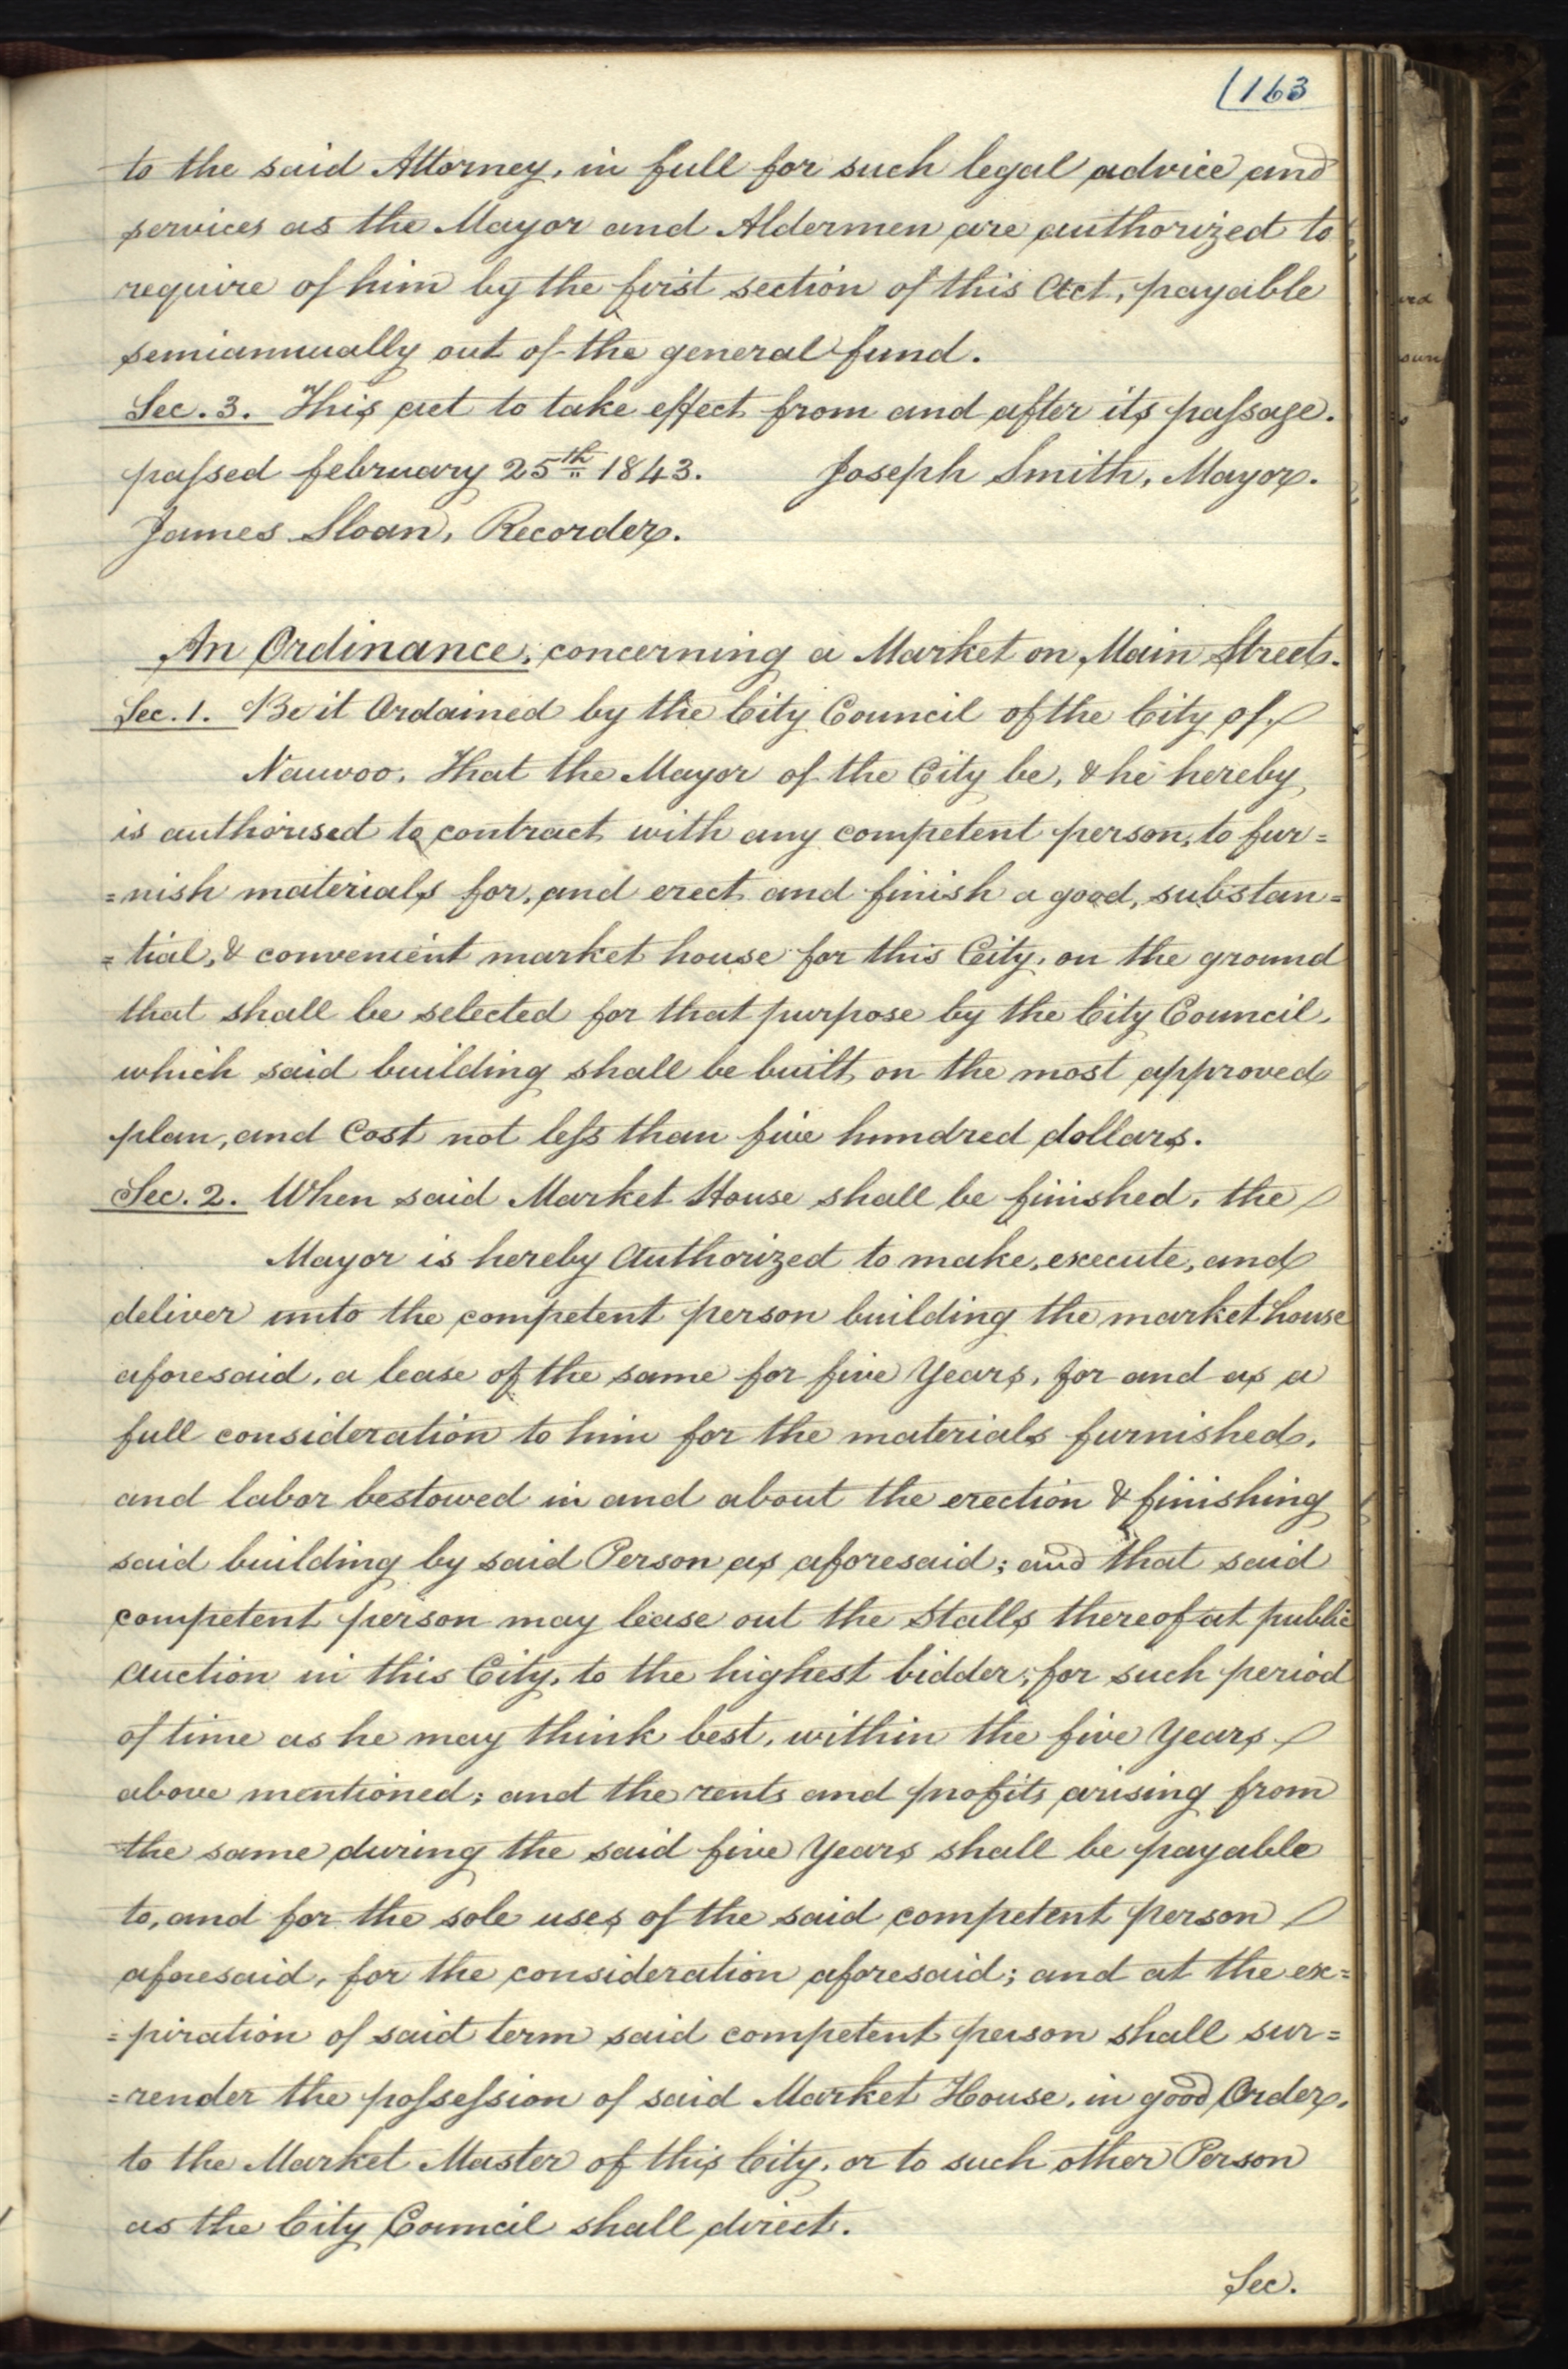 (163
to the said Attorney, in full for such legal advice and
services as the Mayor and Aldermen are authorized to
require of him by the first section of this Act, payable
semiannually out of the general fund.
Sec. 3. This act to take effect from and after its passage.
passed february 25th 1843. Joseph Smith, Mayor.
James Sloan, Recorder.
An Ordinance, concerning a Market on Main Street.
Sec. 1. Be it Ordained by the City Council of the City of
Nauvoo, That the Mayor of the City be, & he hereby
is authorised to contract with any competent person, to fur=
=nish materials for, and erect and finish a good, substan=
=tial, & convenient market house for this City, on the ground
that shall be selected for that purpose by the City Council,
which said building shall be built on the most approved
plan, and Cost not less than five hundred dollars.
Sec. 2. When said Market House shall be finished, the
Mayor is hereby Authorized to make, execute, and
deliver unto the competent person building the market house
aforesaid, a lease of the same for five Years, for and as a
full consideration to him for the materials furnished,
and labor bestowed in and about the erection & finishing
said building by said Person as aforesaid; and that said
competent person may lease out the Stalls thereof at public
Auction in this City, to the highest bidder, for such period
of time as he may think best, within the five Years
above mentioned; and the rents and profits arising from
the same during the said five Years shall be payable
to, and for the sole uses of the said competent person
aforesaid, for the consideration aforesaid; and at the ex=
=piration of said term said competent person shall sur=
=render the possession of said Market House, in good Order,
to the Market Master of this City, or to such other Person
as the City Council shall direct.
Sec.